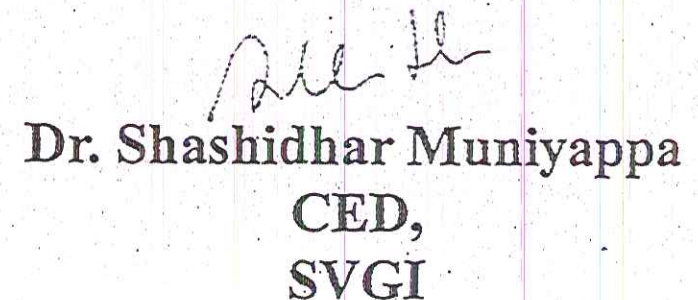 Dr. Shashidhar Muniyappa
CED,
SVGI